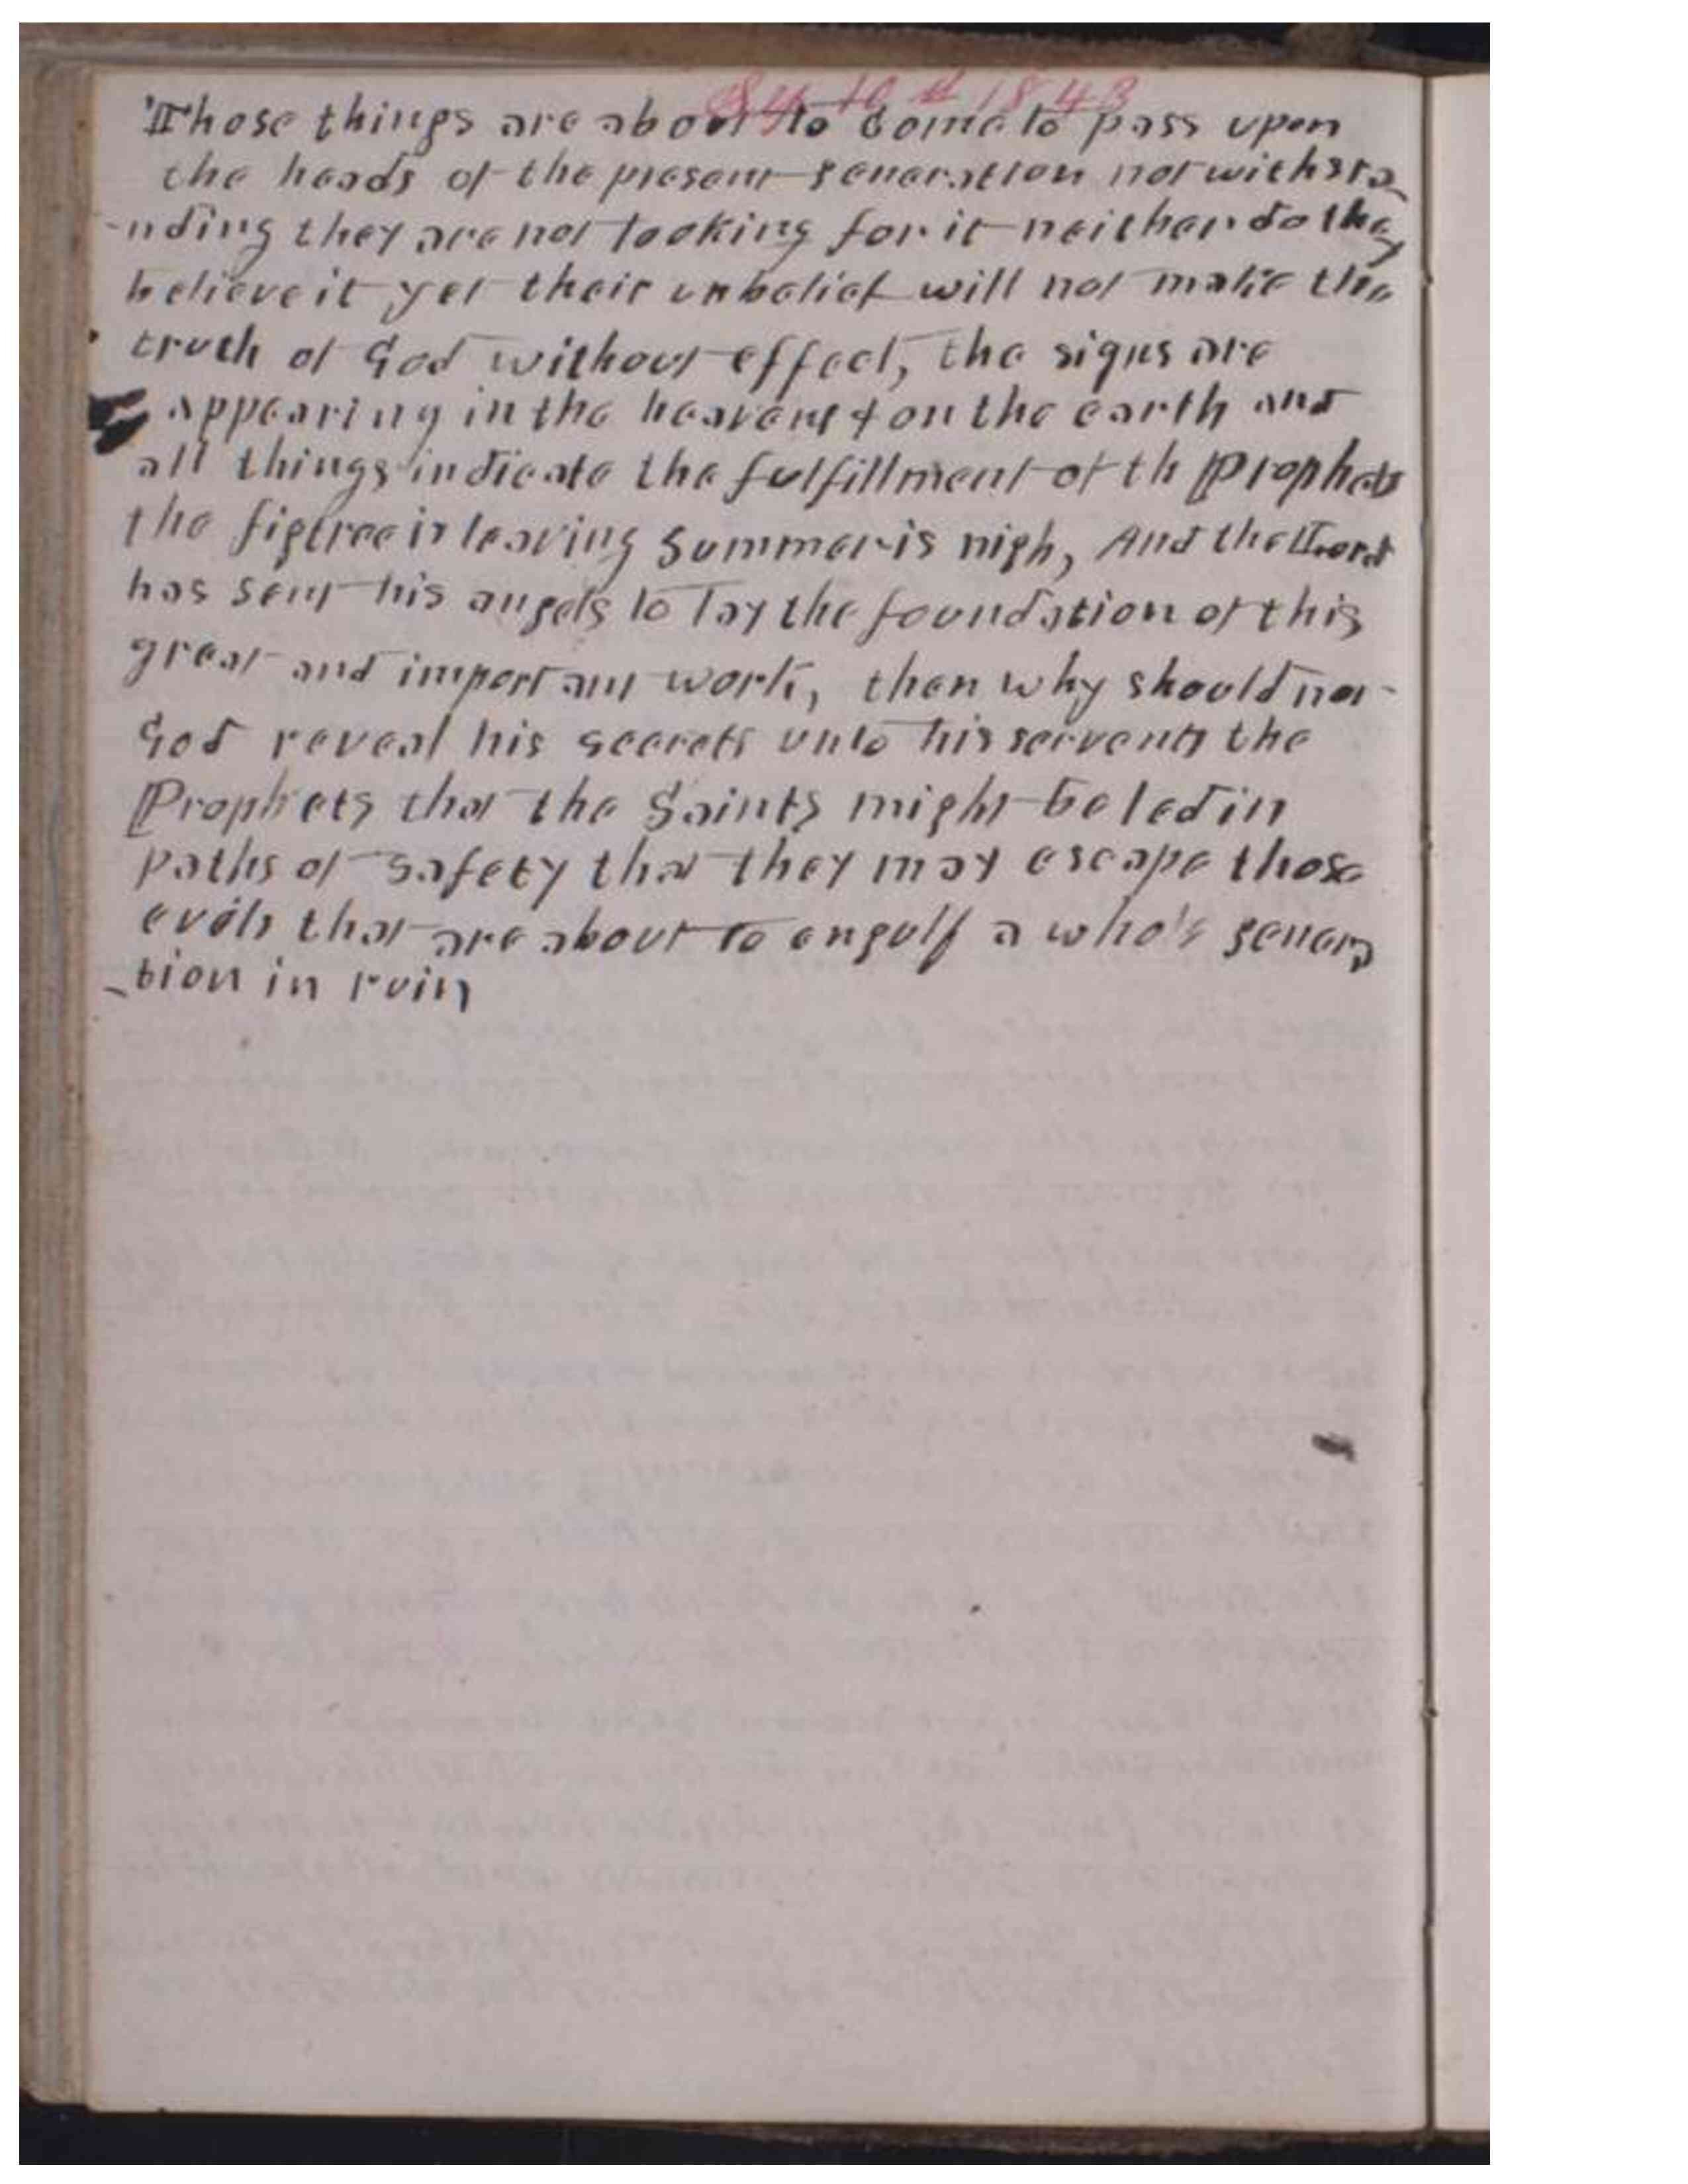 10th 1843
Those things are about to come to pass upon
the heads of the present generation notwithsta
-nding they are not looking for it neither do they
believe it yet their unbelief will not make the
truth of God without effect, the signs are
appearing in the heavens & on the earth and
all things indicate the fulfillment of th Prophets
the figtree is leaving Summer is nigh, And the Lord
has sent his angels to lay the foundation of this
great and important work, then why should not
God reveal his secrets unto his servents the
Prophets that the Saints might be led in
paths of safety that they may escape those
evils that are about to engulf a whole genera
-tion in ruin